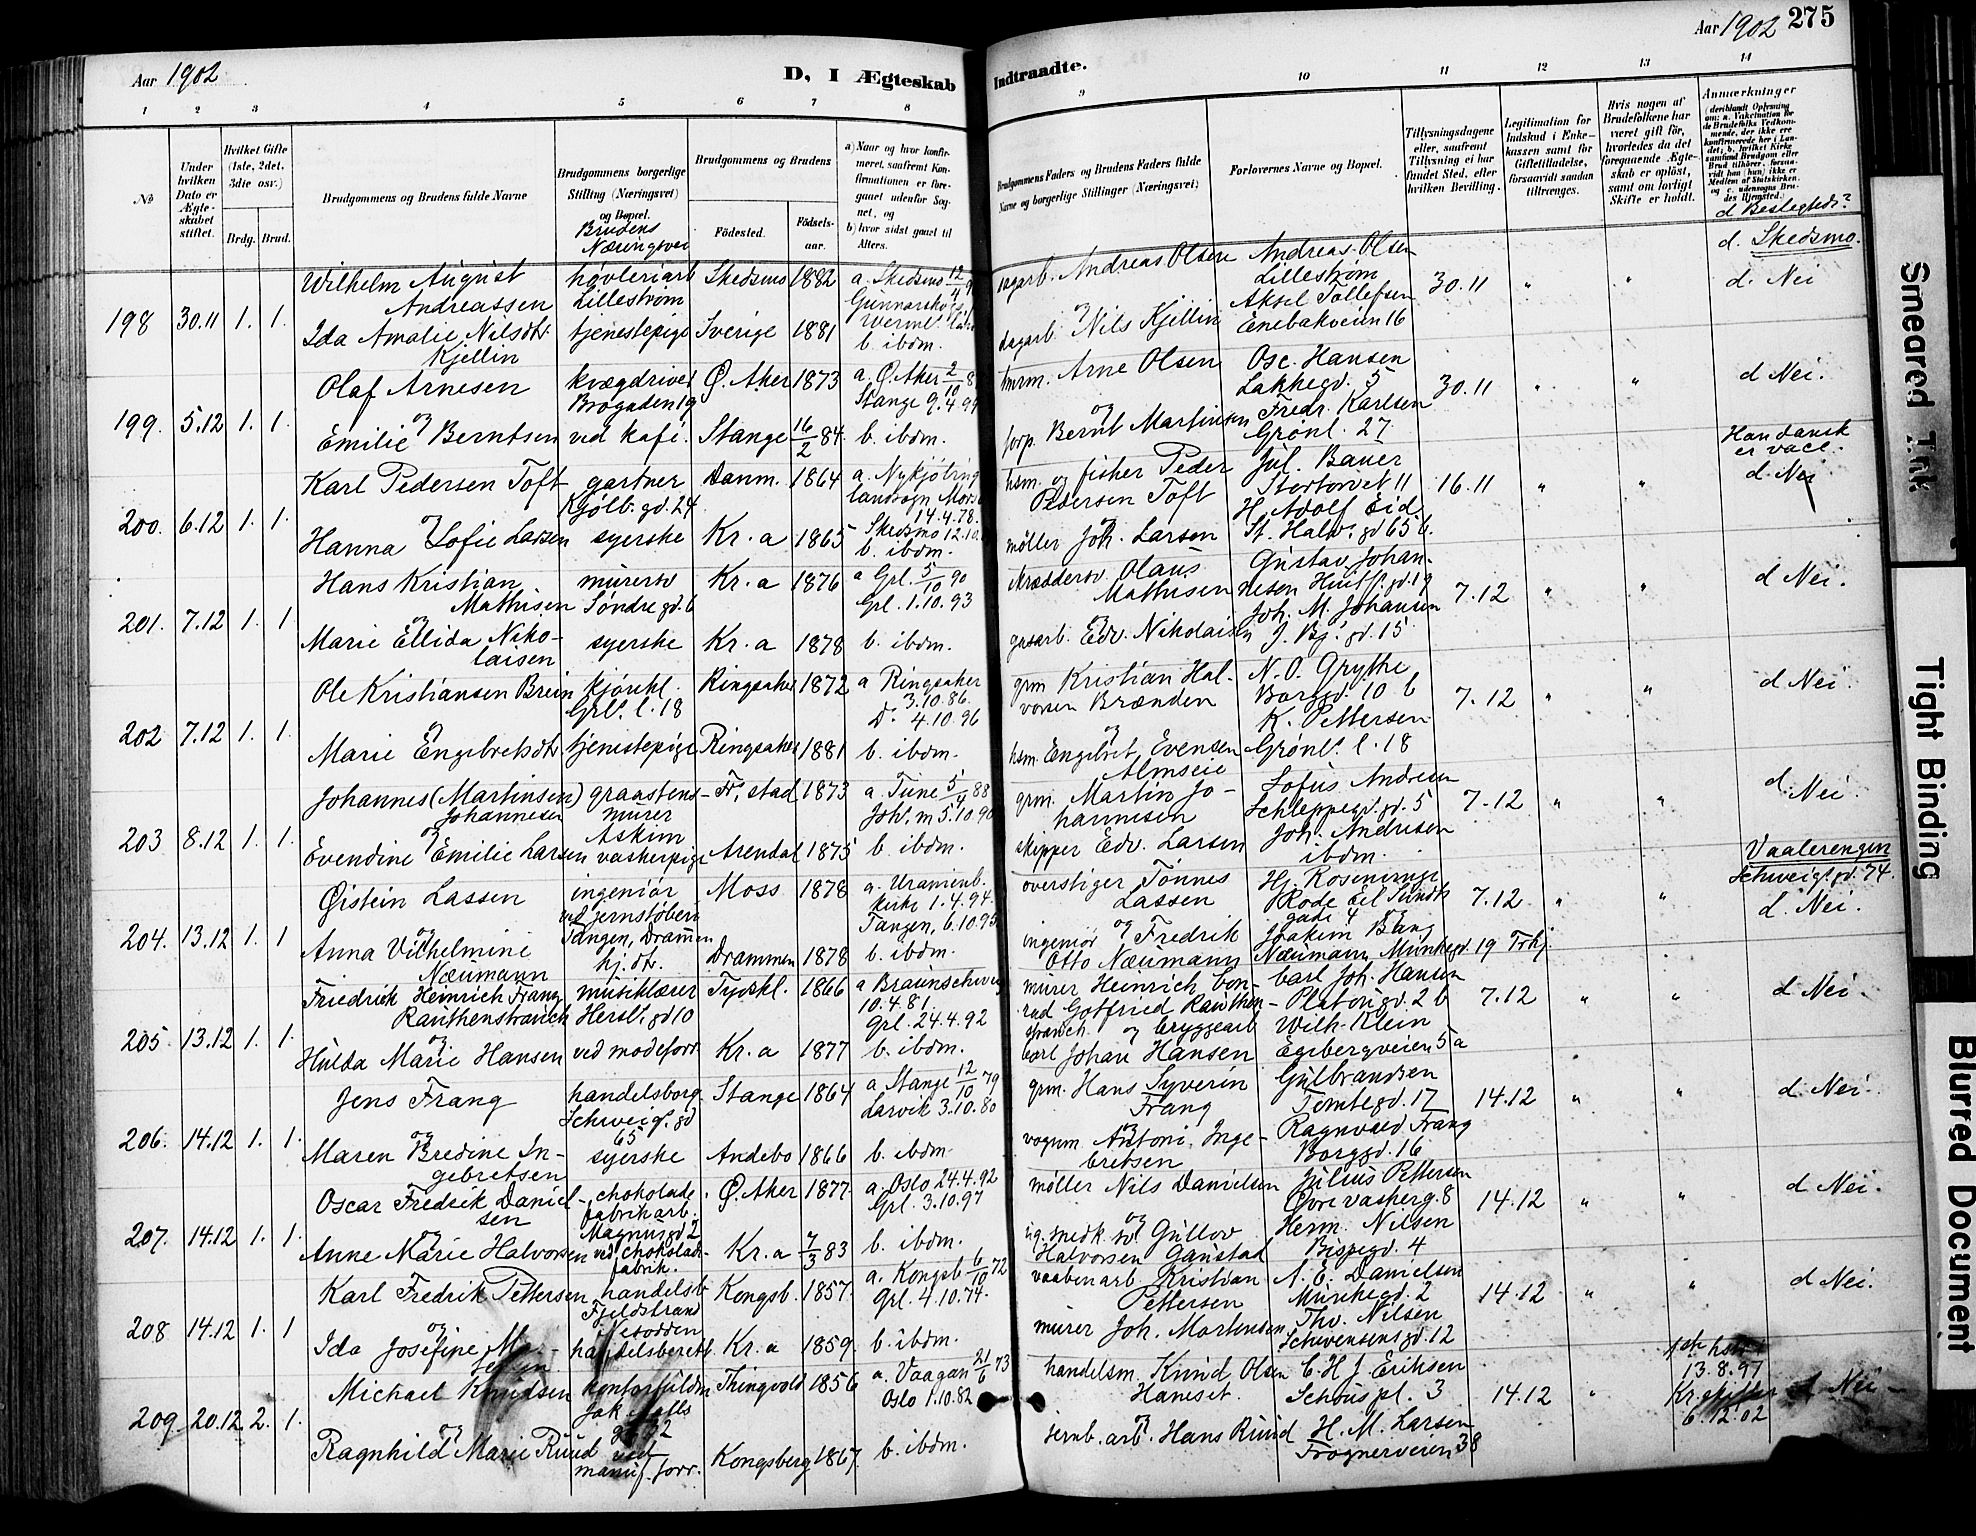 Aar 1902
D, I Ægteskab
Indtraadte.
Aar 1902 275
1 2 3 4 5 6 7 8 9 10 11 12 13 14
No
Under hvilken Dato er Ægteskabet stiftet.
Hvilket Gifte (1ste, 2det, 3die osv.)
Brdg. Brud.
Brudgommens og Brudens fulde Navne
Brudgommens borgerlige Stilling (Næringsvei) og Bopæl.
Brudens Næringsvei
Brudgommens og Brudens
Fødested.
Fødselsaar.
a) Naar og hvor konfirmeret, saafremt Konfirmationen er foregaaet udenfor Sognet, og
b) hvor sidst gaaet til Alters.
Brudgommens Faders og Brudens Faders fulde Navne og borgerlige Stillinger (Næringsvei)
Forlovernes Navne og Bopæl.
Tillysningsdagene eller, saafremt Tillysning ei har fundet Sted, efter hvilken Bevilling.
Legitimation for Indskud i Enkekassen samt for Giftetilladelse, forsaavidt saadan tiltrænges.
Hvis nogen af Brudefolkene har været gift før, hvorledes da det foregaaende Ægteskab er opløst, samt om lovligt Skifte er holdt.
Anmærkninger
d Beslegtede?
198 30.11 1. 1.
Wilhelm August Andreassen
høvleriarb Lillestrøm
Skedsmo 1882
a. Skedsmo 12/4
sagarb. Andreas Olsen
Andreas Olsen Lillestrøm
30.11
d. Skedsmo.
d. Nei
og
Ida Amalie Nilsdtr Kjellin
tjenestepige Sverige 1881
Gunnarskog
b. ibdm.
dagarb. Nils Kjellin
Aksel Tollefsen Enebakveien 16
199. 5.12 1. 1.
Olaf Arnesen
kvægdriver
Ø. Aker 1873
a. Ø. Aker 2/10
Stange 9.4.99
tmrm. Arne Olsen
Osc. Hansen Lakkegd. 5
30.11
d Nei.
og
Emilie Berntsen
ved kafé. Stange 16/2 84.
b. ibdm.
forp. Bernt Martinsen
Fredr. Karlsen Grønl. 27
200. 6.12 1. 1.
Karl Pedersen Toft
gartner Kjølb. gd. 24
Danm. 1864
a. Nykjøbing landsogn Mors 14.4.78.
hsm. og fisher Peder Pedersen Toft
Jul. Bauer Stortorvet 11
16.11
Han dansk er vacc.
d. Nei
og
Hanna Sofie Larsen
syerske Kr.a 1865
Skedsmo 12.10.
b. ibdm.
møller Joh. Larsen
H. Adolf Eid. St. Halv. gd 65 b.
201. 7.12 1. 1
Hans Kristian Mathisen
murersv Søndre gd. 6
Kr.a 1876
a Grl. 5/10 90
Grl. 1.10.93
skræddersv Olaus Mathisen
Gustav Johannesen Huitf. gd. 19
7.12
d Nei.
og
Marie Ellida Nikolaisen
syerske Kr.a 1878
b. ibdm.
gasarb. Edv. Nikolaisen
Joh. M. Johansen J. Bj. gd. 15
202 7.12 1. 1.
Ole Kristiansen Brein
Grl. l. 18
Ringsaker 1872
a Ringsaker 3.10.86.
D. 4.10.96
grm Kristian Halvorsen Brænden
N. O. Grythe Borggd. 10 b
7.12
d. Nei.
og
Marie Engebretsdtr
tjenestepige Ringsaker 1881
b. ibdm.
hsm. Engebret Evensen Almseie
K. Pettersen Grønl. l. 18
203 8.12 1. 1.
Johannes (Martinsen) Johannesen
graastensmurer Askim
Fr. stad 1873
a. Tune 5/4 88
Joh. m 5.10.90
grm. Martin Johannesen
Sofus Andresen Schleppegd. gd. 5
7.12
d. Nei.
og
Evendine Emilie Larsen
vaskerpige Arendal 1875
b. ibdm.
skipper Edv. Larsen
Joh. Andresen ibdm.
204. 13.12 1. 1
Øistein Lassen
ingeniør ved jernstøberi Tangen, Drammen
Moss 1878
a. Uranienb. kirke 1.4.94
Tangen, 6.10.95
overstiger Tønnes Lassen
Hj. Roseninge Rode Eil Sundts gade 4
7.12
Vaalerengen
Schweig. gd. 74.
d. Nei.
og
Anna Vilhelmine Næumann
hj. dtr. Drammen 1878
b. ibdm.
ingeniør Fredrik Otto Næumann
Joakim Bang Næumann, Munkegd. 19 Trhj.
205. 13.12 1. 1.
Friedrik Heinrich Franz Rauthenstrauch
musiklærer Hersl. gd 10
Tydskl. 1866
a Braunschweig 10.4.81.
Grl. 24.4.92
murer Heinrich Conrad Gotfried Rauthenstrauch.
Carl Joh. Hansen Platousgd. 2 b
7.12
d Nei.
og
Hulda Marie Hansen
ved modeforr. Kr.a 1877
b. ibdm.
bryggearb Carl Johan Hansen
Wilh. Klein Egebergveien 5 a
206. 14.12 1. 1.
Jens Frang
handelsborg. Schweig. gd 65
Stange 1864
a Stange 12/10 79
Larvik 3.10.80
grm. Hans Syverin Frang
Gulbrandsen Tomtegd. 17
14.12
d Nei.
og
Maren Bredine Ingebretsen
syerske Andebo 1866
b. ibdm.
vognm Antoni Ingebretsen
Ragnvald Frang Borggd. 16
207. 14.12 1. 1.
Oscar Fredrik Danielsen
chokoladefabrikarb. Magnusgd 2
Ø. Aker 1877
a. Oslo 24.4.92
Grl. 3.10.97
møller Nils Danielsen
Julius Pettersen Øvre vaskerg. 8
14.12
d Nei.
og
Anne Marie Halvorsen
ved chokoladefabrik.
Kr.a 7/3 83
b. ibdm.
Gullov Halvorsen Gaustad
Herm. Nilsen Bispegd. 4
208 14.12 1. 1
Karl Fredrik Pettersen
handelsb. Fjeldstrand Nesodden
Kongsb. 1857.
a. Kongsb 6/10 72
Grl. 4.10.74.
vaabenarb Kristian Pettersen
A. E. Danielsen Munkegd. 2
14.12
d Nei.
og
Ida Josefine
handelsberett. Kr.a 1859.
b. ibdm.
murer Joh. Mortensen
Thv. Nilsen Schwensensgd. 12
209. 20.12 2. 1.
Michael Knudsen
Thingvold 1856
a. Vaagan 21/6 73
Oslo 1.10.82
handelsm. Knud Olsen Haneset.
C. H. J. Eriksen Schouspl. 3
14.12
13.8.97
6.12.02
d Nei
og
Ragnhild Marie Ruud
ved manuf. forr. Kongsberg 1867
b. ibdm.
jernb. arb. Hans Ruud
H. M. Larsen Frognerveien 38
Smeared Ink
Tight Binding
Blurred Document